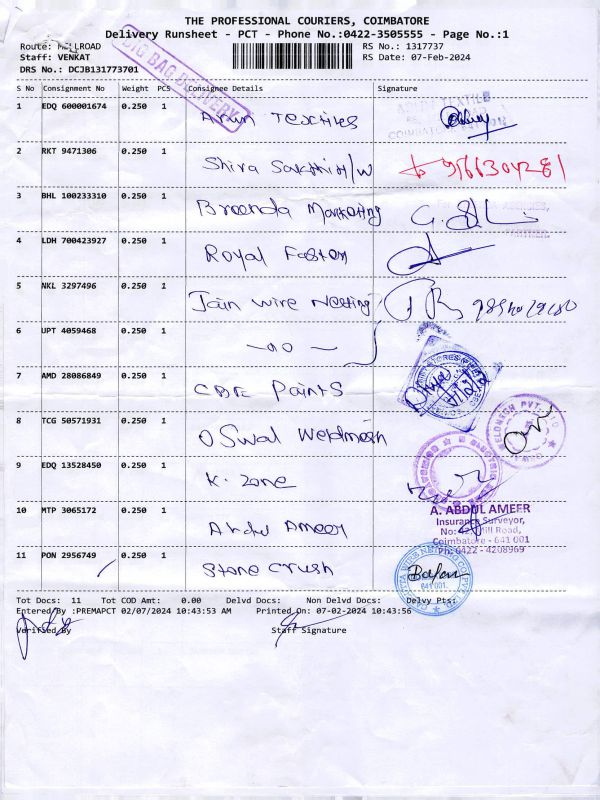 THE PROFESSIONAL COURIERS, COIMBATORE
Delivery Runsheet - PCT - Phone No.:0422-3505555 - Page No.:1
Route: MILLROAD
RS No.: 1317737
Staff: VENKAT
RS Date: 07-Feb-2024
DRS No.: DCJB131773701
BIG BAG DELIVERY
S No Consignment No Weight PCS Consignee Details Signature
1 EDQ 600001674 0.250 1 Arun Textiles
2 RKT 9471306 0.250 1 Shiva Sakthi H/W
3 BHL 100233310 0.250 1 Marketing
4 LDH 700423927 0.250 1 Royal Fasten
5 NKL 3297496 0.250 1 Jain wire Netting
6 UPT 4059468 0.250 1 — do —
7 AMD 28086849 0.250 1 CBE Paints
8 TCG 50571931 0.250 1 Oswal Weldmesh
9 EDQ 13528450 0.250 1 K. Zone
10 MTP 3065172 0.250 1 Abdul Ameer
A. ABDUL AMEER
Insurance Surveyor,
No: Mill Road,
Coimbatore - 641 001
Ph: 0422 - 4208969
11 PON 2956749 0.250 1 Stone Crush
Tot Docs: 11 Tot COD Amt: 0.00 Delvd Docs: Non Delvd Docs: Delvy Pts:
Entered By :PREMAPCT 02/07/2024 10:43:53 AM Printed On: 07-02-2024 10:43:56
Verified By Staff Signature